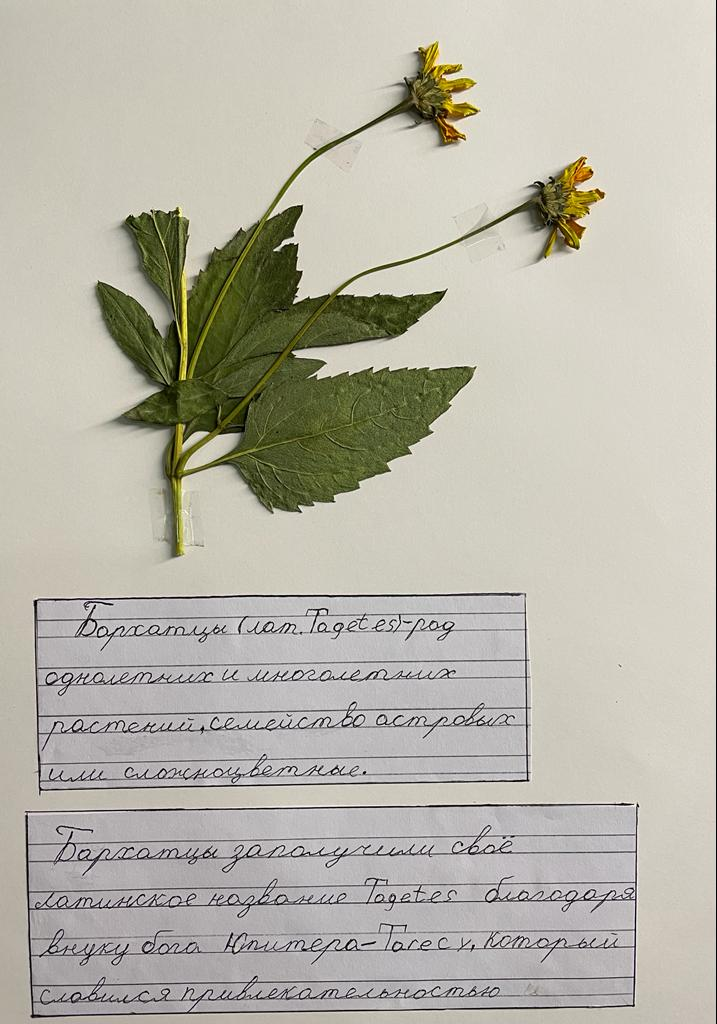 Бархатцы (лат. Tagetes)-род
однолетних и многолетних
растений, семейство астровых
или сложноцветные.
Бархатцы заполучили своё
латинское название Tagetes благодаря
внуку бога Юпитера-Тагесу, который
славился привлекательностью